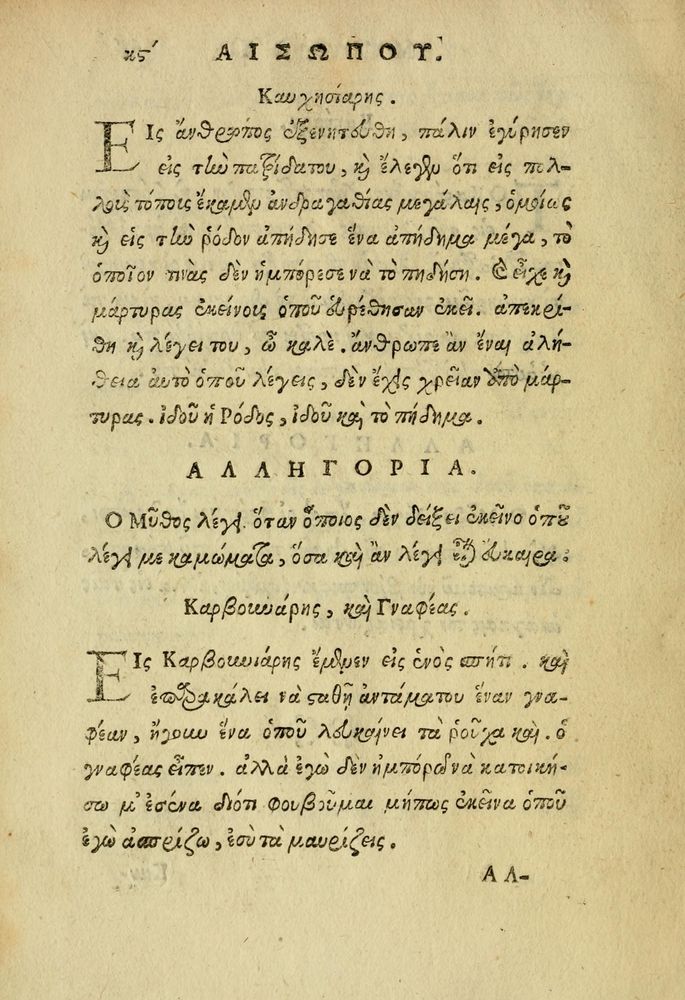 κϛ΄ ΑΙΣΩΠΟΥ.
Καυχησιάρης.
ΕΙς ἄνθρωπος ἐξενητεύθη, πάλιν ἐγύρησεν
εἰς τὴν παζίδατου, κὶ ἔλεγεν ὅτι εἰς πολ-
λοὺς τόποις ἔκαμεν ἀνδραγαθίας μεγάλαις, ὁμοίως
κὶ εἰς τὴν ῥόδον ἀπήδησε ἕνα ἀπήδημα μέγα, τὸ
ὁποῖον τινὰς δὲν ἠμπόρεσε νὰ τὸ πηδήση. Ἐ εἶχε κὶ
μάρτυρας ἐκείνοις ὁποῦ εὑρέθησαν ἐκεῖ. ἀπεκρί-
θη κὶ λέγει του, ὦ καλὲ. ἄνθρωπε ἂν ἔναι ἀλή-
θεια αὐτὸ ὁποῦ λέγεις, δὲν ἔχεις χρεῖαν ὑπὸ μάρ-
τυρας. ἰδοῦ ἡ Ρόδος, ἰδοῦ καὶ τὸ πήδημα.
ΑΛΛΗΓΟΡΙΑ.
Ο Μῦθος λέγει ὅταν ὅποιος δὲν δείξει ἐκεῖνο ὁποῦ
λέγει με καμώματα, ὅσα καὶ ἂν λέγει εὔκαιρα.
Καρβουνάρης, καὶ Γναφέας.
ΕΙς Καρβουνιάρης ἔμενεν εἰς ἑνὸς σπήτι. καὶ
ἐπαρακάλει νὰ σταθῇ ἀντάματου ἕναν γνα-
φέαν, ἤγουν ἕνα ὁποῦ λευκαίνει τὰ ῥοῦχα καὶ. ὁ
γναφέας εἶπεν. ἀλλὰ ἐγὼ δὲν ἠμπόρω νὰ κατοική-
σω μ' ἐσένα διότι φουβοῦμαι μήπως ἐκεῖνα ὁποῦ
ἐγὼ ἀσπρίζω, ἐσυ τὰ μαυρίζεις.
ΑΛ-